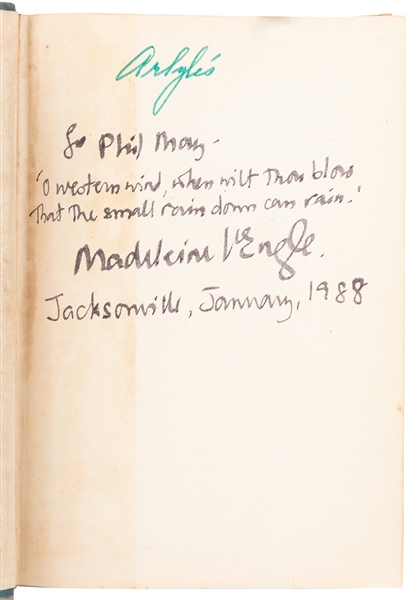 Arlyle's
for Phil May -
'O western wind, when wilt Thou blow
That the small rain down can rain.'
Madeleine L'Engle.
Jacksonville, January, 1988